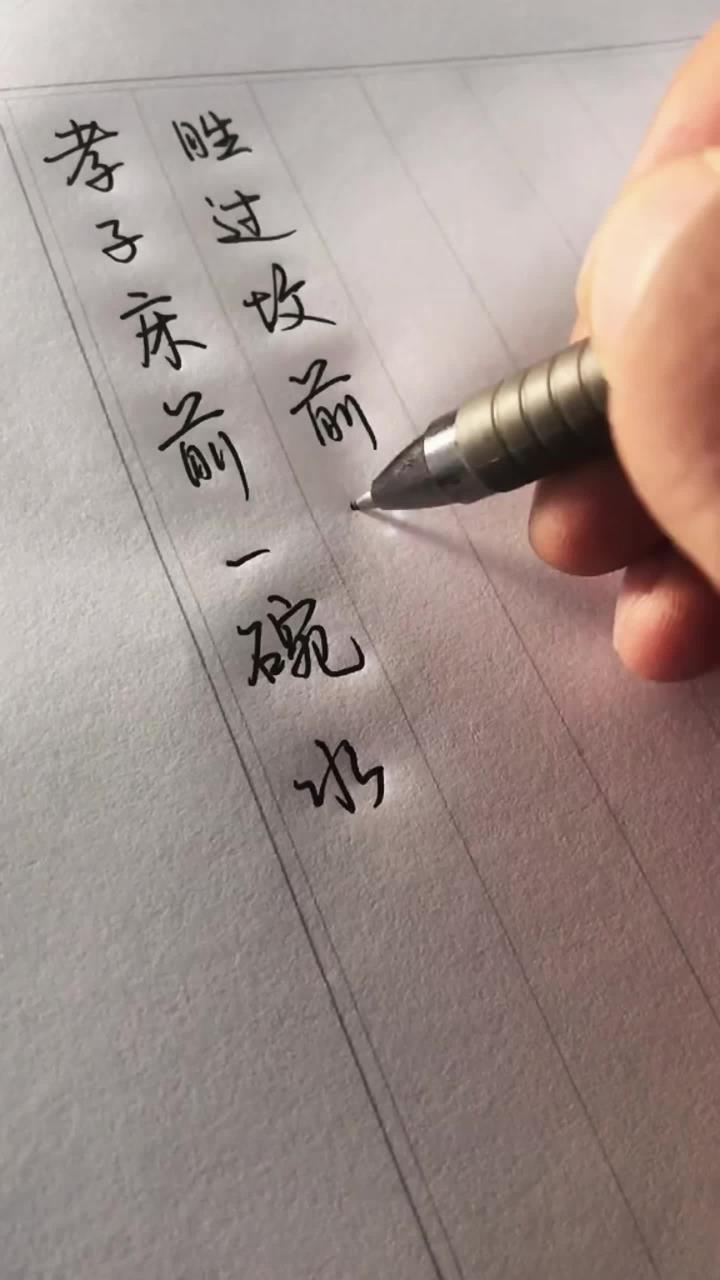 孝子床前一碗水
胜过坟前